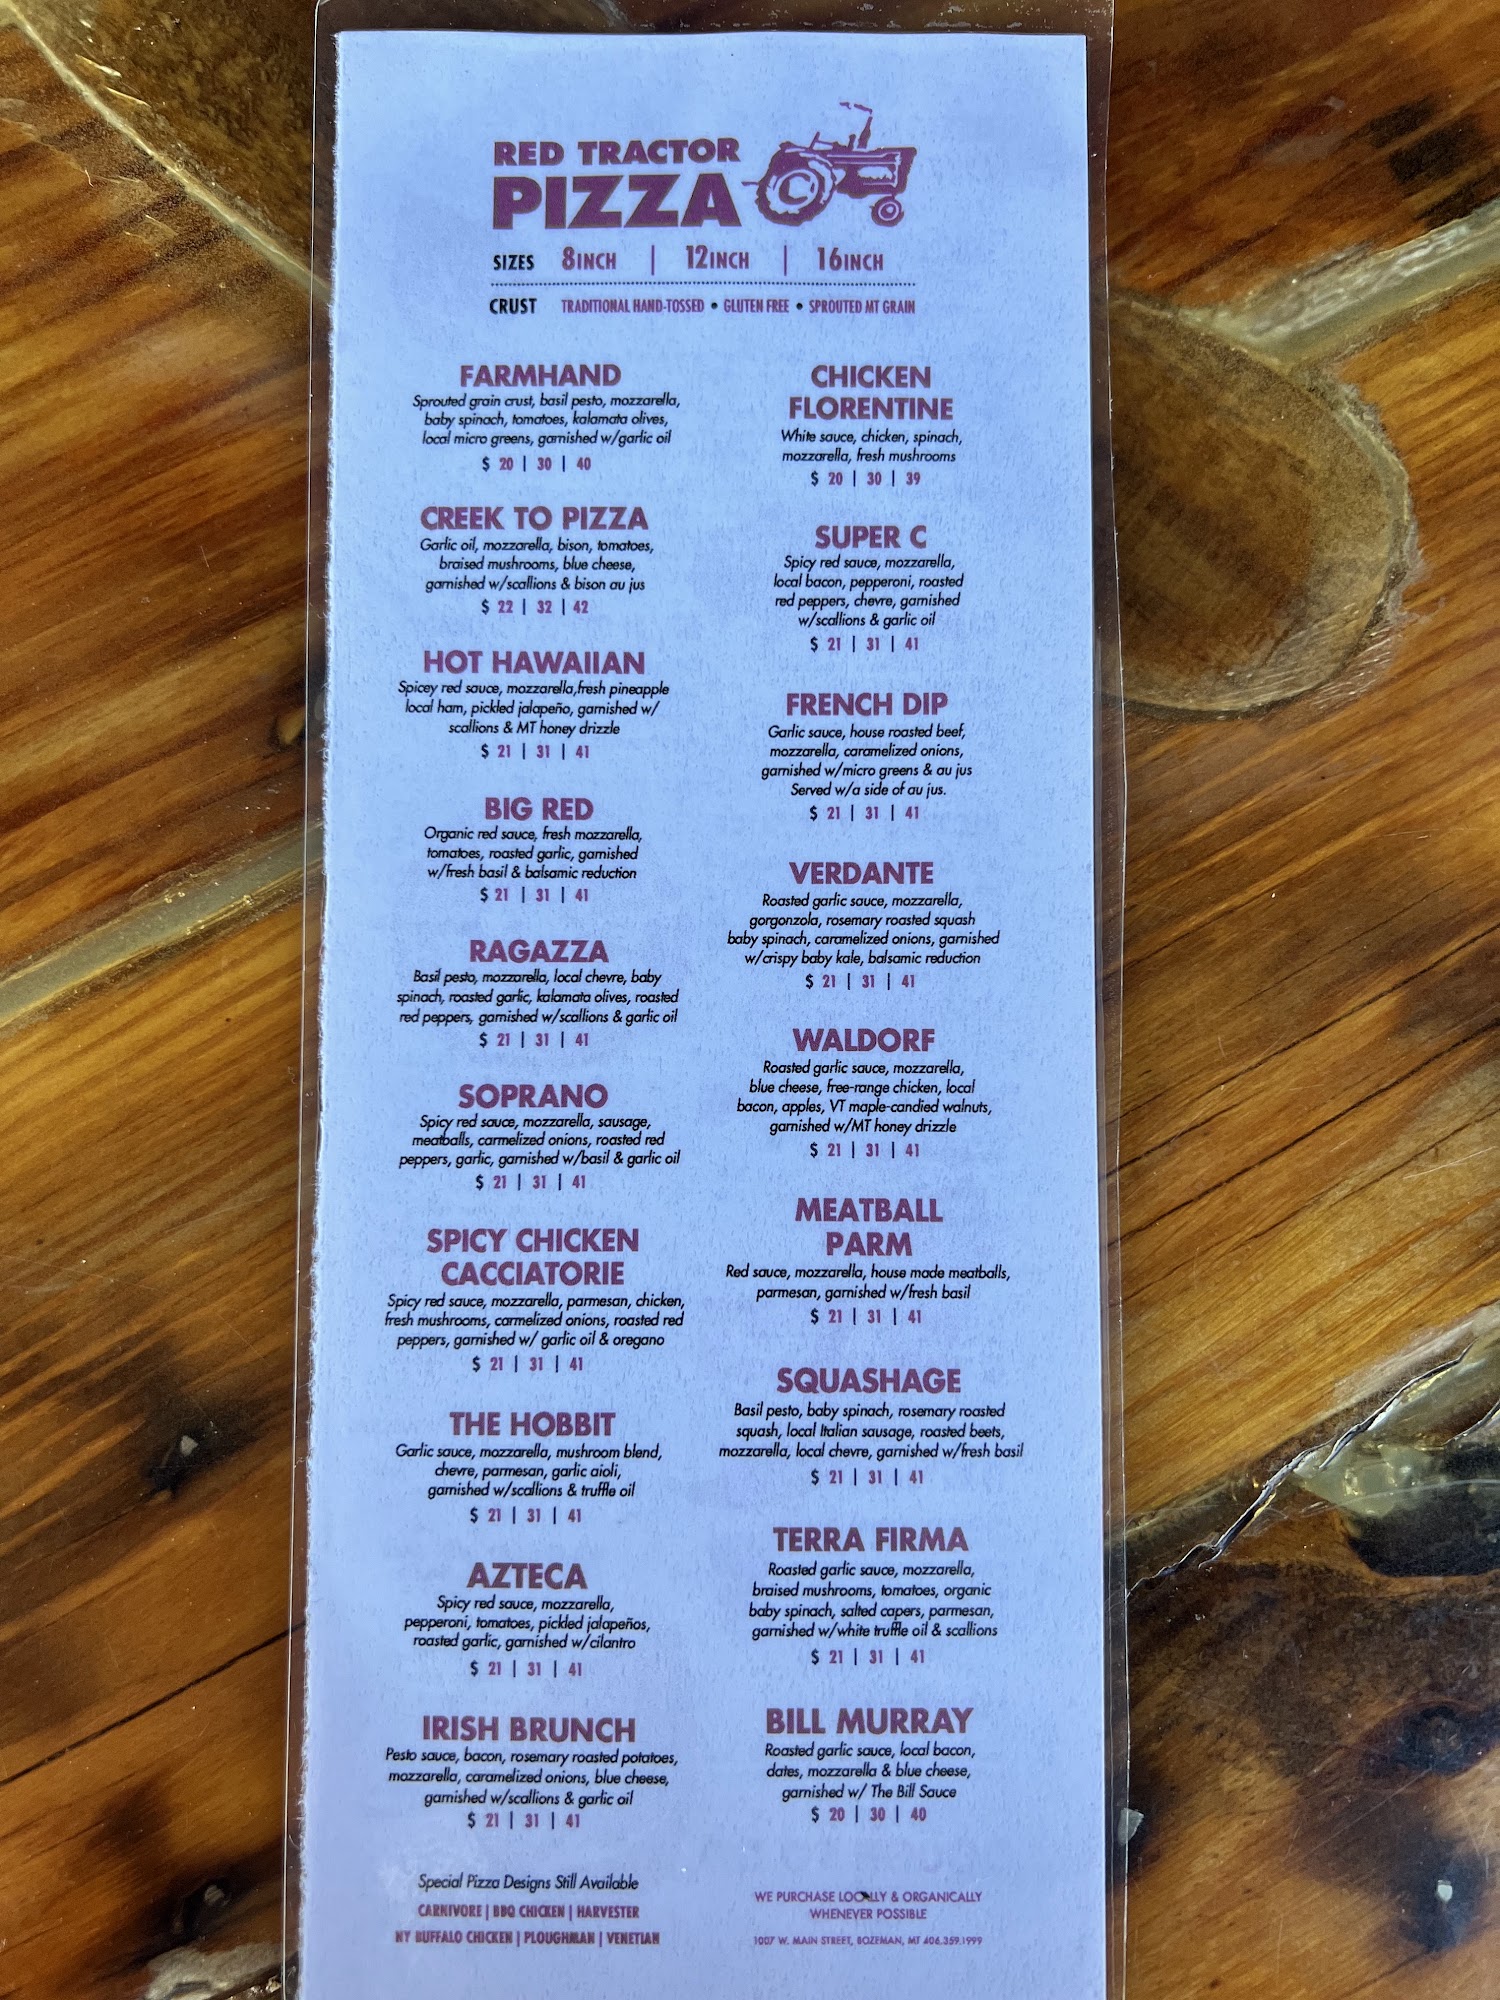 RED TRACTOR
PIZZA
SIZES 8INCH | 12INCH | 16INCH
CRUST TRADITIONAL HAND-TOSSED • GLUTEN FREE • SPROUTED MT GRAIN
FARMHAND
Sprouted grain crust, basil pesto, mozzarella,
baby spinach, tomatoes, kalamata olives,
local micro greens, garnished w/garlic oil
$ 20 | 30 | 40
CREEK TO PIZZA
Garlic oil, mozzarella, bison, tomatoes,
braised mushrooms, blue cheese,
garnished w/scallions & bison au jus
$ 22 | 32 | 42
HOT HAWAIIAN
Spicey red sauce, mozzarella,fresh pineapple
local ham, pickled jalapeño, garnished w/
scallions & MT honey drizzle
$ 21 | 31 | 41
BIG RED
Organic red sauce, fresh mozzarella,
tomatoes, roasted garlic, garnished
w/fresh basil & balsamic reduction
$ 21 | 31 | 41
RAGAZZA
Basil pesto, mozzarella, local chevre, baby
spinach, roasted garlic, kalamata olives, roasted
red peppers, garnished w/scallions & garlic oil
$ 21 | 31 | 41
SOPRANO
Spicy red sauce, mozzarella, sausage,
meatballs, carmelized onions, roasted red
peppers, garlic, garnished w/basil & garlic oil
$ 21 | 31 | 41
SPICY CHICKEN
CACCIATORIE
Spicy red sauce, mozzarella, parmesan, chicken,
fresh mushrooms, carmelized onions, roasted red
peppers, garnished w/ garlic oil & oregano
$ 21 | 31 | 41
THE HOBBIT
Garlic sauce, mozzarella, mushroom blend,
chevre, parmesan, garlic aioli,
garnished w/scallions & truffle oil
$ 21 | 31 | 41
AZTECA
Spicy red sauce, mozzarella,
pepperoni, tomatoes, pickled jalapeños,
roasted garlic, garnished w/cilantro
$ 21 | 31 | 41
IRISH BRUNCH
Pesto sauce, bacon, rosemary roasted potatoes,
mozzarella, caramelized onions, blue cheese,
garnished w/scallions & garlic oil
$ 21 | 31 | 41
Special Pizza Designs Still Available
CARNIVORE | BBQ CHICKEN | HARVESTER
NY BUFFALO CHICKEN | PLOUGHMAN | VENETIAN
CHICKEN
FLORENTINE
White sauce, chicken, spinach,
mozzarella, fresh mushrooms
$ 20 | 30 | 39
SUPER C
Spicy red sauce, mozzarella,
local bacon, pepperoni, roasted
red peppers, chevre, garnished
w/scallions & garlic oil
$ 21 | 31 | 41
FRENCH DIP
Garlic sauce, house roasted beef,
mozzarella, caramelized onions,
garnished w/micro greens & au jus
Served w/a side of au jus.
$ 21 | 31 | 41
VERDANTE
Roasted garlic sauce, mozzarella,
gorgonzola, rosemary roasted squash
baby spinach, caramelized onions, garnished
w/crispy baby kale, balsamic reduction
$ 21 | 31 | 41
WALDORF
Roasted garlic sauce, mozzarella,
blue cheese, free-range chicken, local
bacon, apples, VT maple-candied walnuts,
garnished w/MT honey drizzle
$ 21 | 31 | 41
MEATBALL
PARM
Red sauce, mozzarella, house made meatballs,
parmesan, garnished w/fresh basil
$ 21 | 31 | 41
SQUASHAGE
Basil pesto, baby spinach, rosemary roasted
squash, local Italian sausage, roasted beets,
mozzarella, local chevre, garnished w/fresh basil
$ 21 | 31 | 41
TERRA FIRMA
Roasted garlic sauce, mozzarella,
braised mushrooms, tomatoes, organic
baby spinach, salted capers, parmesan,
garnished w/white truffle oil & scallions
$ 21 | 31 | 41
BILL MURRAY
Roasted garlic sauce, local bacon,
dates, mozzarella & blue cheese,
garnished w/ The Bill Sauce
$ 20 | 30 | 40
WE PURCHASE LOCALLY & ORGANICALLY
WHENEVER POSSIBLE
1007 W. MAIN STREET, BOZEMAN, MT 406.359.1999